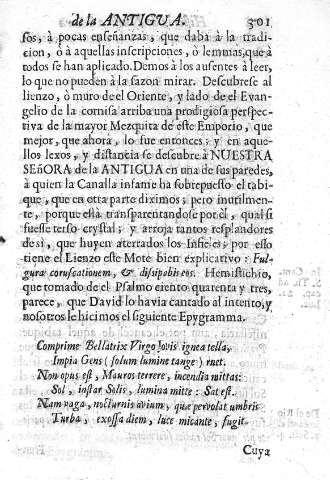 de la ANTIGUA. 301
ſos, à pocas enſeñanzas, que daba à la tradi-
cion, ò à aquellas inſcripciones, ò lemmas, que à
todos ſe han aplicado. Demos à los auſentes à leer,
lo que no pueden à la ſazon mirar. Deſcubreſe al
lienzo, ò muro de el Oriente, y lado de el Evan-
gelio de la corniſa arriba una prodigioſa perſpec-
tiva de la mayor Mezquita de eſte Emporio, que
mejor, que ahora, lo fue entonces; y en aque-
llos lexos, y diſtancia ſe deſcubre à NUESTRA
SEñORA de la ANTIGUA en una de ſus paredes,
à quien la Canalla infame ha ſobrepueſto el tabi-
que, que en otra parte diximos; pero inutilmen-
te, porque eſtà tranſparentandoſe por èl, qual ſi
fueſſe terſo cryſtal; y arroja tantos reſplandores
de sì, que huyen aterrados los Infieles; por eſſo
tiene el Lienzo eſte Mote bien explicativo: Ful-
gura coruſcationem, & diſsipabis eos. Hemiſtichio,
que tomado de el Pſalmo ciento quarenta y tres,
parece, que David lo havia cantado al intento, y
noſotros le hicimos el ſiguiente Epygramma.
Comprime Bellatrix Virgo Iovis ignea tella,
Impia Gens (ſolum lumine tange) ruet.
Non opus eſt, Mauros terrere, incendia mittas:
Sol, inſtar Solis, lumina mitte: Sat eſt.
Nam vaga, nocturnis avium, quæ pervolat umbris
Turba, exoſſa diem, luce micante, fugit.
Cuya